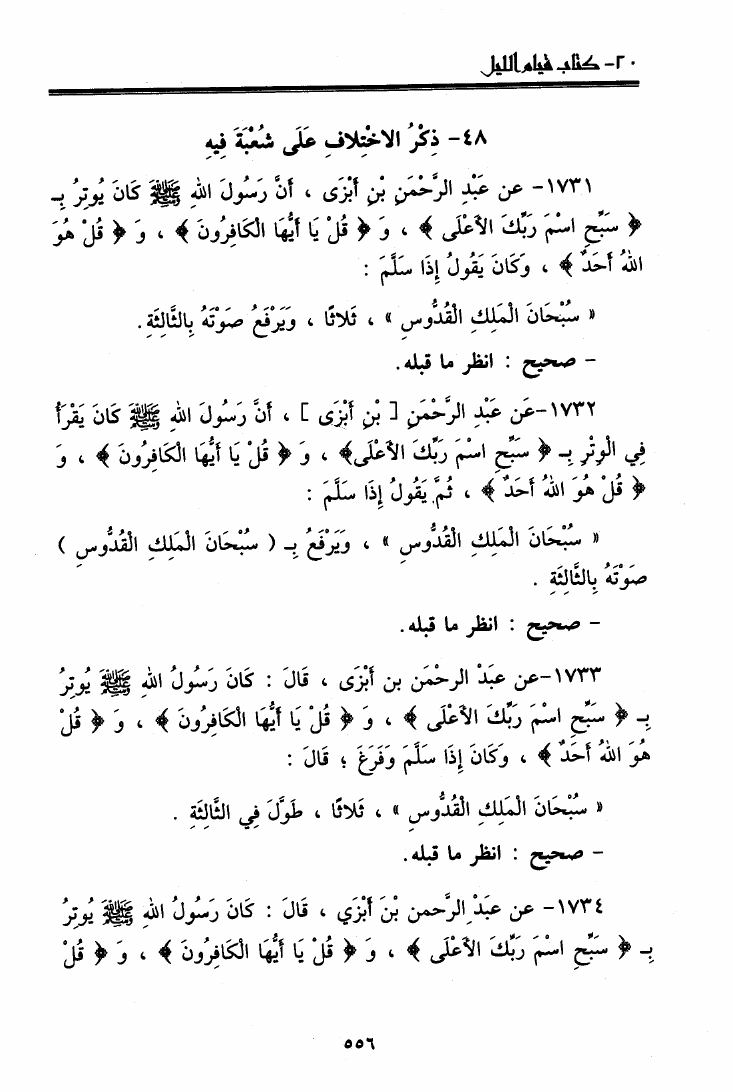 ٢٠- كتاب قيام الليل
٤٨- ذِكْرُ الاخْتِلافِ عَلَى شُعْبَةَ فِيهِ
١٧٣١- عن عَبْدِ الرَّحْمَنِ بْنِ أَبْزَى ، أَنَّ رَسُولَ اللهِ ﷺ كَانَ يُوتِرُ بِـ
﴿ سَبِّحِ اسْمَ رَبِّكَ الأَعْلَى ﴾ ، وَ ﴿ قُلْ يَا أَيُّهَا الْكَافِرُونَ ﴾ ، وَ ﴿ قُلْ هُوَ
اللهُ أَحَدٌ ﴾ ، وَكَانَ يَقُولُ إِذَا سَلَّمَ :
« سُبْحَانَ الْمَلِكِ الْقُدُّوسِ » ، ثَلاثًا ، وَيَرْفَعُ صَوْتَهُ بِالثَّالِثَةِ.
– صحيح : انظر ما قبله.
١٧٣٢-عَن عَبْدِ الرَّحْمَنِ [ بْنِ أَبْزَى ] ، أَنَّ رَسُولَ اللهِ ﷺ كَانَ يَقْرَأُ
فِي الْوِتْرِ بِـ ﴿ سَبِّحِ اسْمَ رَبِّكَ الأَعْلَى﴾ ، وَ ﴿ قُلْ يَا أَيُّهَا الْكَافِرُونَ ﴾ ، وَ
﴿ قُلْ هُوَ اللهُ أَحَدٌ ﴾ ، ثُمَّ يَقُولُ إِذَا سَلَّمَ :
« سُبْحَانَ الْمَلِكِ الْقُدُّوسِ » ، وَيَرْفَعُ بِـ ( سُبْحَانَ الْمَلِكِ الْقُدُّوسِ )
صَوْتَهُ بِالثَّالِثَةِ .
– صحيح : انظر ما قبله.
١٧٣٣-عن عبَدْ الرحْمَن بن أَبْزَى ، قَالَ : كَانَ رَسُولُ اللهِ ﷺ يُوتِرُ
بِـ ﴿ سَبِّحِ اسْمَ رَبِّكَ الأَعْلَى ﴾ ، وَ ﴿ قُلْ يَا أَيُّهَا الْكَافِرُونَ ﴾ ، وَ ﴿ قُلْ
هُوَ اللهُ أَحَدٌ ﴾ ، وَكَانَ إِذَا سَلَّمَ وَفَرَغَ ؛ قَالَ :
« سُبْحَانَ الْمَلِكِ الْقُدُّوسِ » ، ثَلاثًا ، طَوَّلَ فِي الثَّالِثَةِ .
– صحيح : انظر ما قبله.
١٧٣٤- عن عبَدْ الرَّحمن بْنَ أَبْزَي ، قَالَ : كَانَ رَسُولُ اللهِ ﷺ يُوتِرُ
بِـ ﴿ سَبِّحِ اسْمَ رَبِّكَ الأَعْلَى ﴾ ، وَ ﴿ قُلْ يَا أَيُّهَا الْكَافِرُونَ ﴾ ، وَ ﴿ قُلْ
٥٥٦